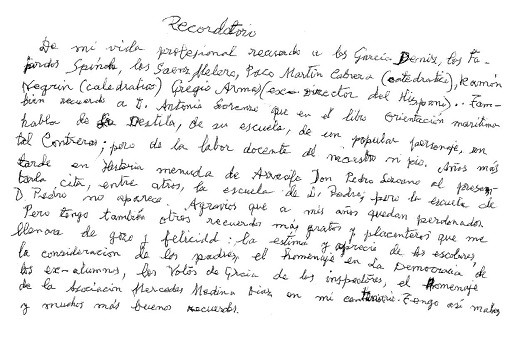 Recordatorio
De mi vida profesional recuerdo a los García Deniz, los Fa-
jardos Spínola, los Saenz Melero, Paco Martín Cabrera (catedrático), Ramón
Negrín (catedrático) Gregio Armas (ex-Director del Hispano).. Tam-
bién recuerdo a D. Antonio Lorenzo que en el libro orientación marítima
habla de La Destila, de su escuela, de un popular personaje, un
tal Contreras; pero de la labor docente del maestro ni pío. Años más
tarde en Historia menuda de Arrecife Don Pedro
tarla cita, entre otros, la escuela de D. Pedro; pero la escuela de
D Pedro no aparece. Agravios que a mis años quedan perdonados.
Pero tengo también otros recuerdos más gratos y placenteros que me
llenara de gozo y felicidd: la estima y aprecio de los escolares,
la consideración de los padres, el homenaje en La Democracia de
los ex-alumnos, los Votos de Gracia de los inspectores, el Homenaje
de la Asociación Mercedes Medina Díaz, en mi centenario. Tengo así malos
y muchos más buenos recuerdos.